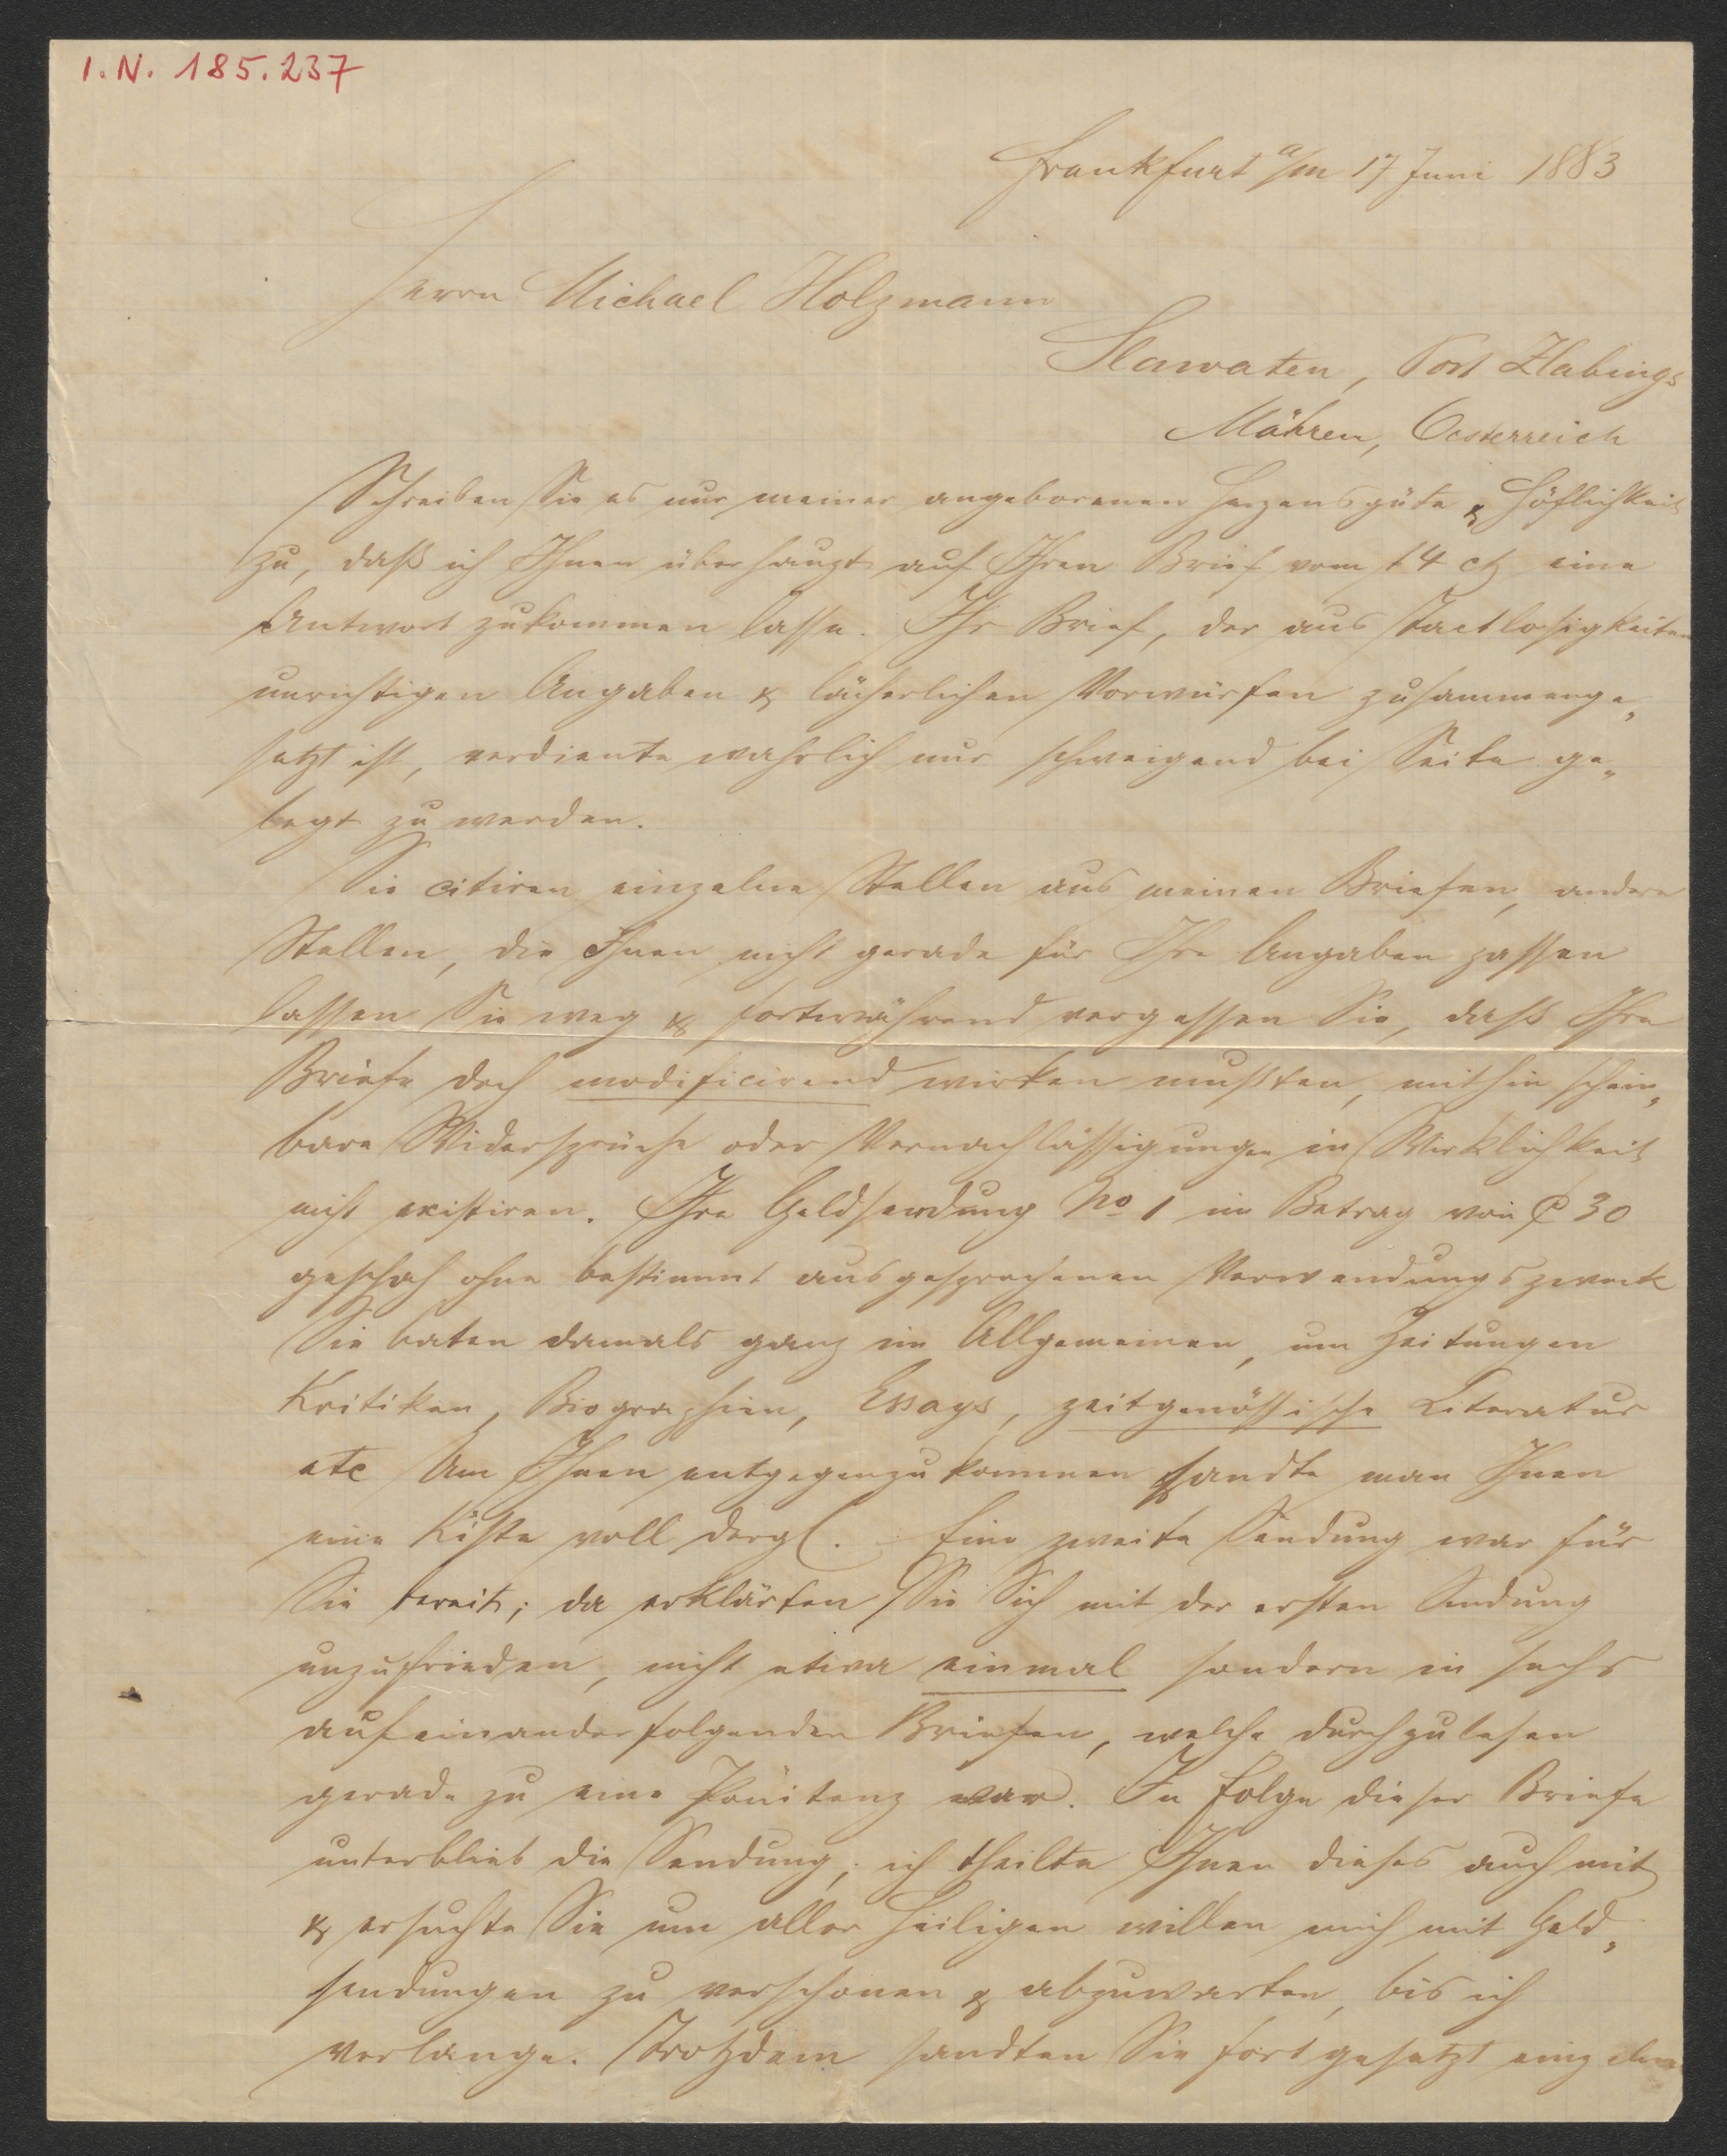 I. N. 185.237
Frankfurt a/m 17 Juni 1883
Herrn Michael Holzmann
Slawaten, Post Zlabings
Mähren, Oesterreich
Schreiben Sie es nur meiner angeborenen Herzensgüte & Höflichkeit
zu, daß ich Ihnen überhaupt auf Ihren Brief vom 14 ct eine
Antwort zukommen lasse. Ihr Brief, der aus Tactlosigkeiten
unrichtigen Angaben & lächerlichen Vorwürfen zusammenge„
setzt ist, verdiente wahrlich nur schweigend bei Seite ge„
legt zu werden.
Sie citiren einzelne Stellen aus meinen Briefen, andere
Stellen, die Ihnen nicht gerade für Ihre Angaben passen
lassen Sie weg & fortwährend vergessen Sie, daß Ihre
Briefe doch modificirend wirken mußten, mithin schein„
bare Widersprüche oder Vernachlässigungen in Wirklichkeit
nicht existiren. Ihre Geldsendung No 1 im Betrag von 30
geschah ohne bestimmt ausgesprochenen Verwendungszweck
Sie baten damals ganz im Allgemeinen, um Zeitungen
Kritiken, Biographien, Essays, zeitgenössische Literatur
etc Um Ihnen entgegenzukommen sandte man Ihnen
eine Kiste voll dergl. Eine zweite Sendung war für
Sie bereit; da erklärten Sie Sich mit der ersten Sendung
unzufrieden, nicht etwa einmal sondern in sechs
aufeinanderfolgenden Briefen, welche durchzulesen
gerade zu eine Pönitenz war. In Folge dieser Briefe
unterblieb die Sendung; ich theilte Ihnen dieses auch mit
& ersuchte Sie um aller Heiligen willen mich mit Geld„
sendungen zu verschonen & abzuwarten, bis ich
verlange. Trotzdem sandten Sie fortgesetzt